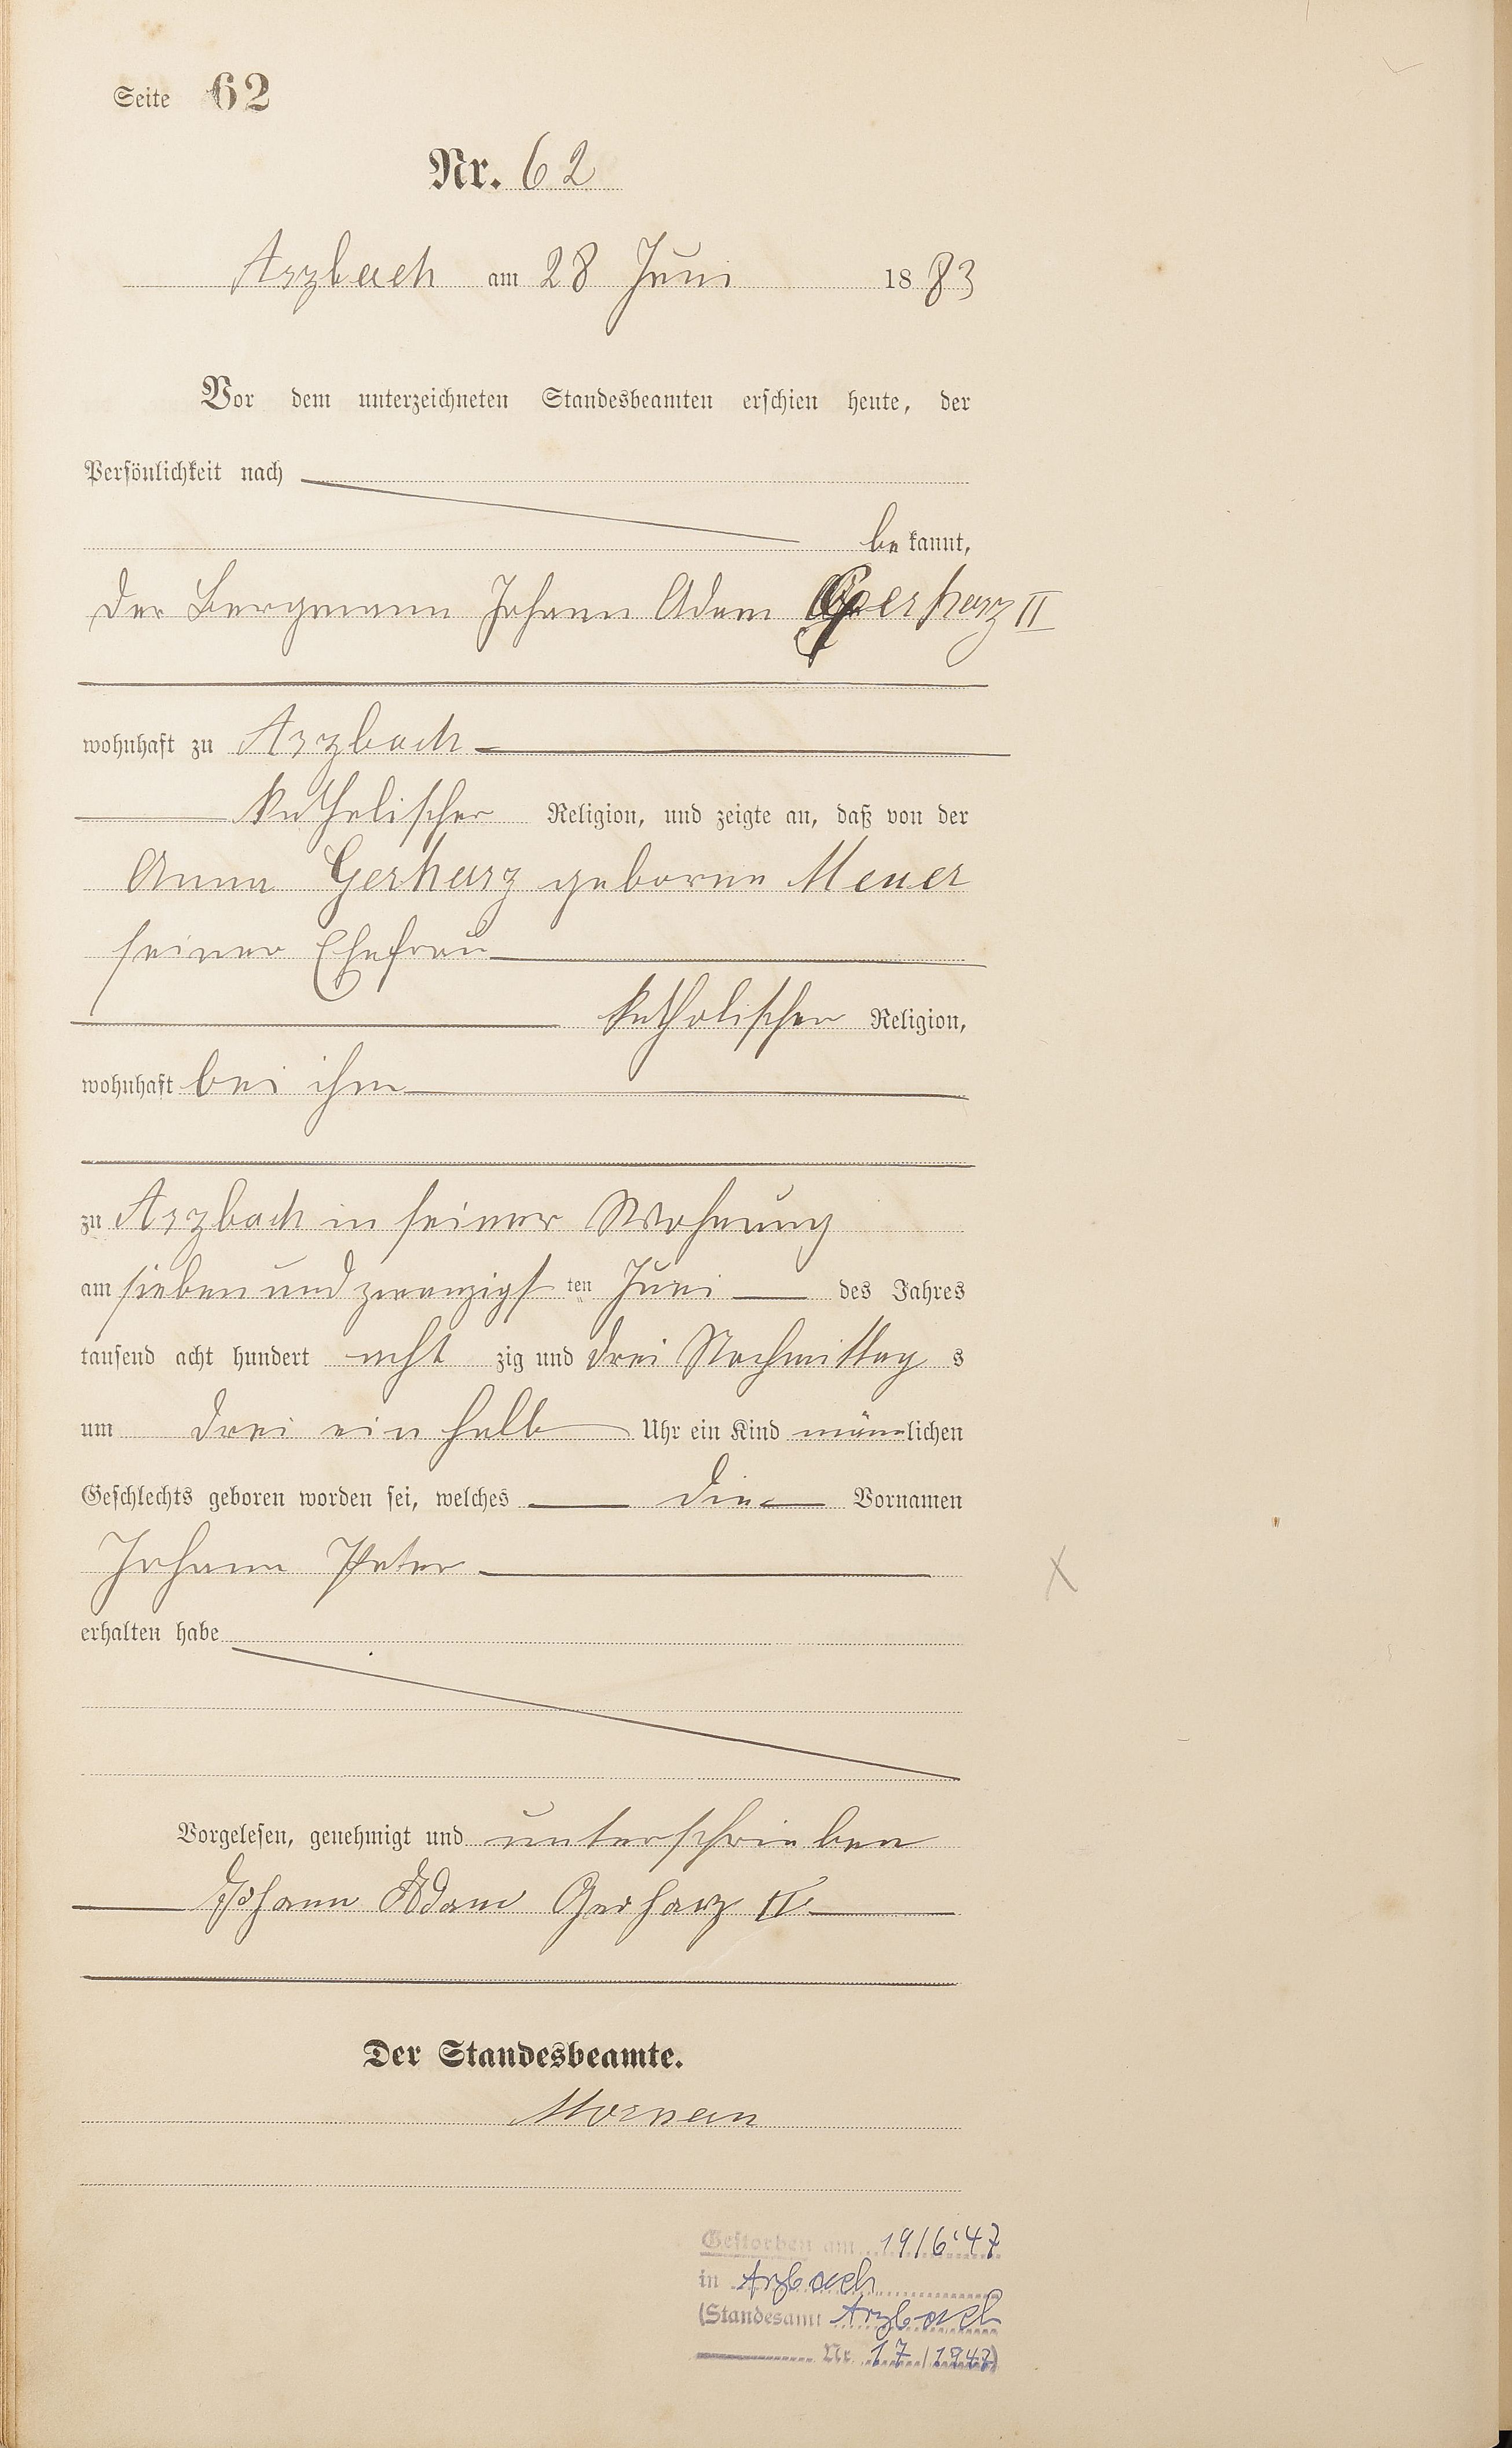 Seite 62
Nr. 62
Arzbach am 28 Juni 1883
Vor dem unterzeichneten Standesbeamten erschien heute, der
Persönlichkeit nach
bekannt,
der Bergmann Johann Adam Gerharz II
wohnhaft zu Arzbach
katholischer Religion, und zeigte an, daß von der
Anna Gerharz geborne Meuer
seiner Ehefrau
katholischer Religion,
wohnhaft bei ihm
zu Arzbach in seiner Wohnung
am sieben und zwanzigsten Juni des Jahres
tausend acht hundert acht zig und drei Nachmittags
um drei ein halb Uhr ein Kind männlichen
Geschlechts geboren worden sei, welches die Vornamen
Johann Peter
erhalten habe
Vorgelesen, genehmigt und unterschrieben
Johann Adam Gerharz II.
Der Standesbeamte.
Gestorben am 19/6.47
in Arzbach
(Standesamt Arzbach
Nr. 17/1947)